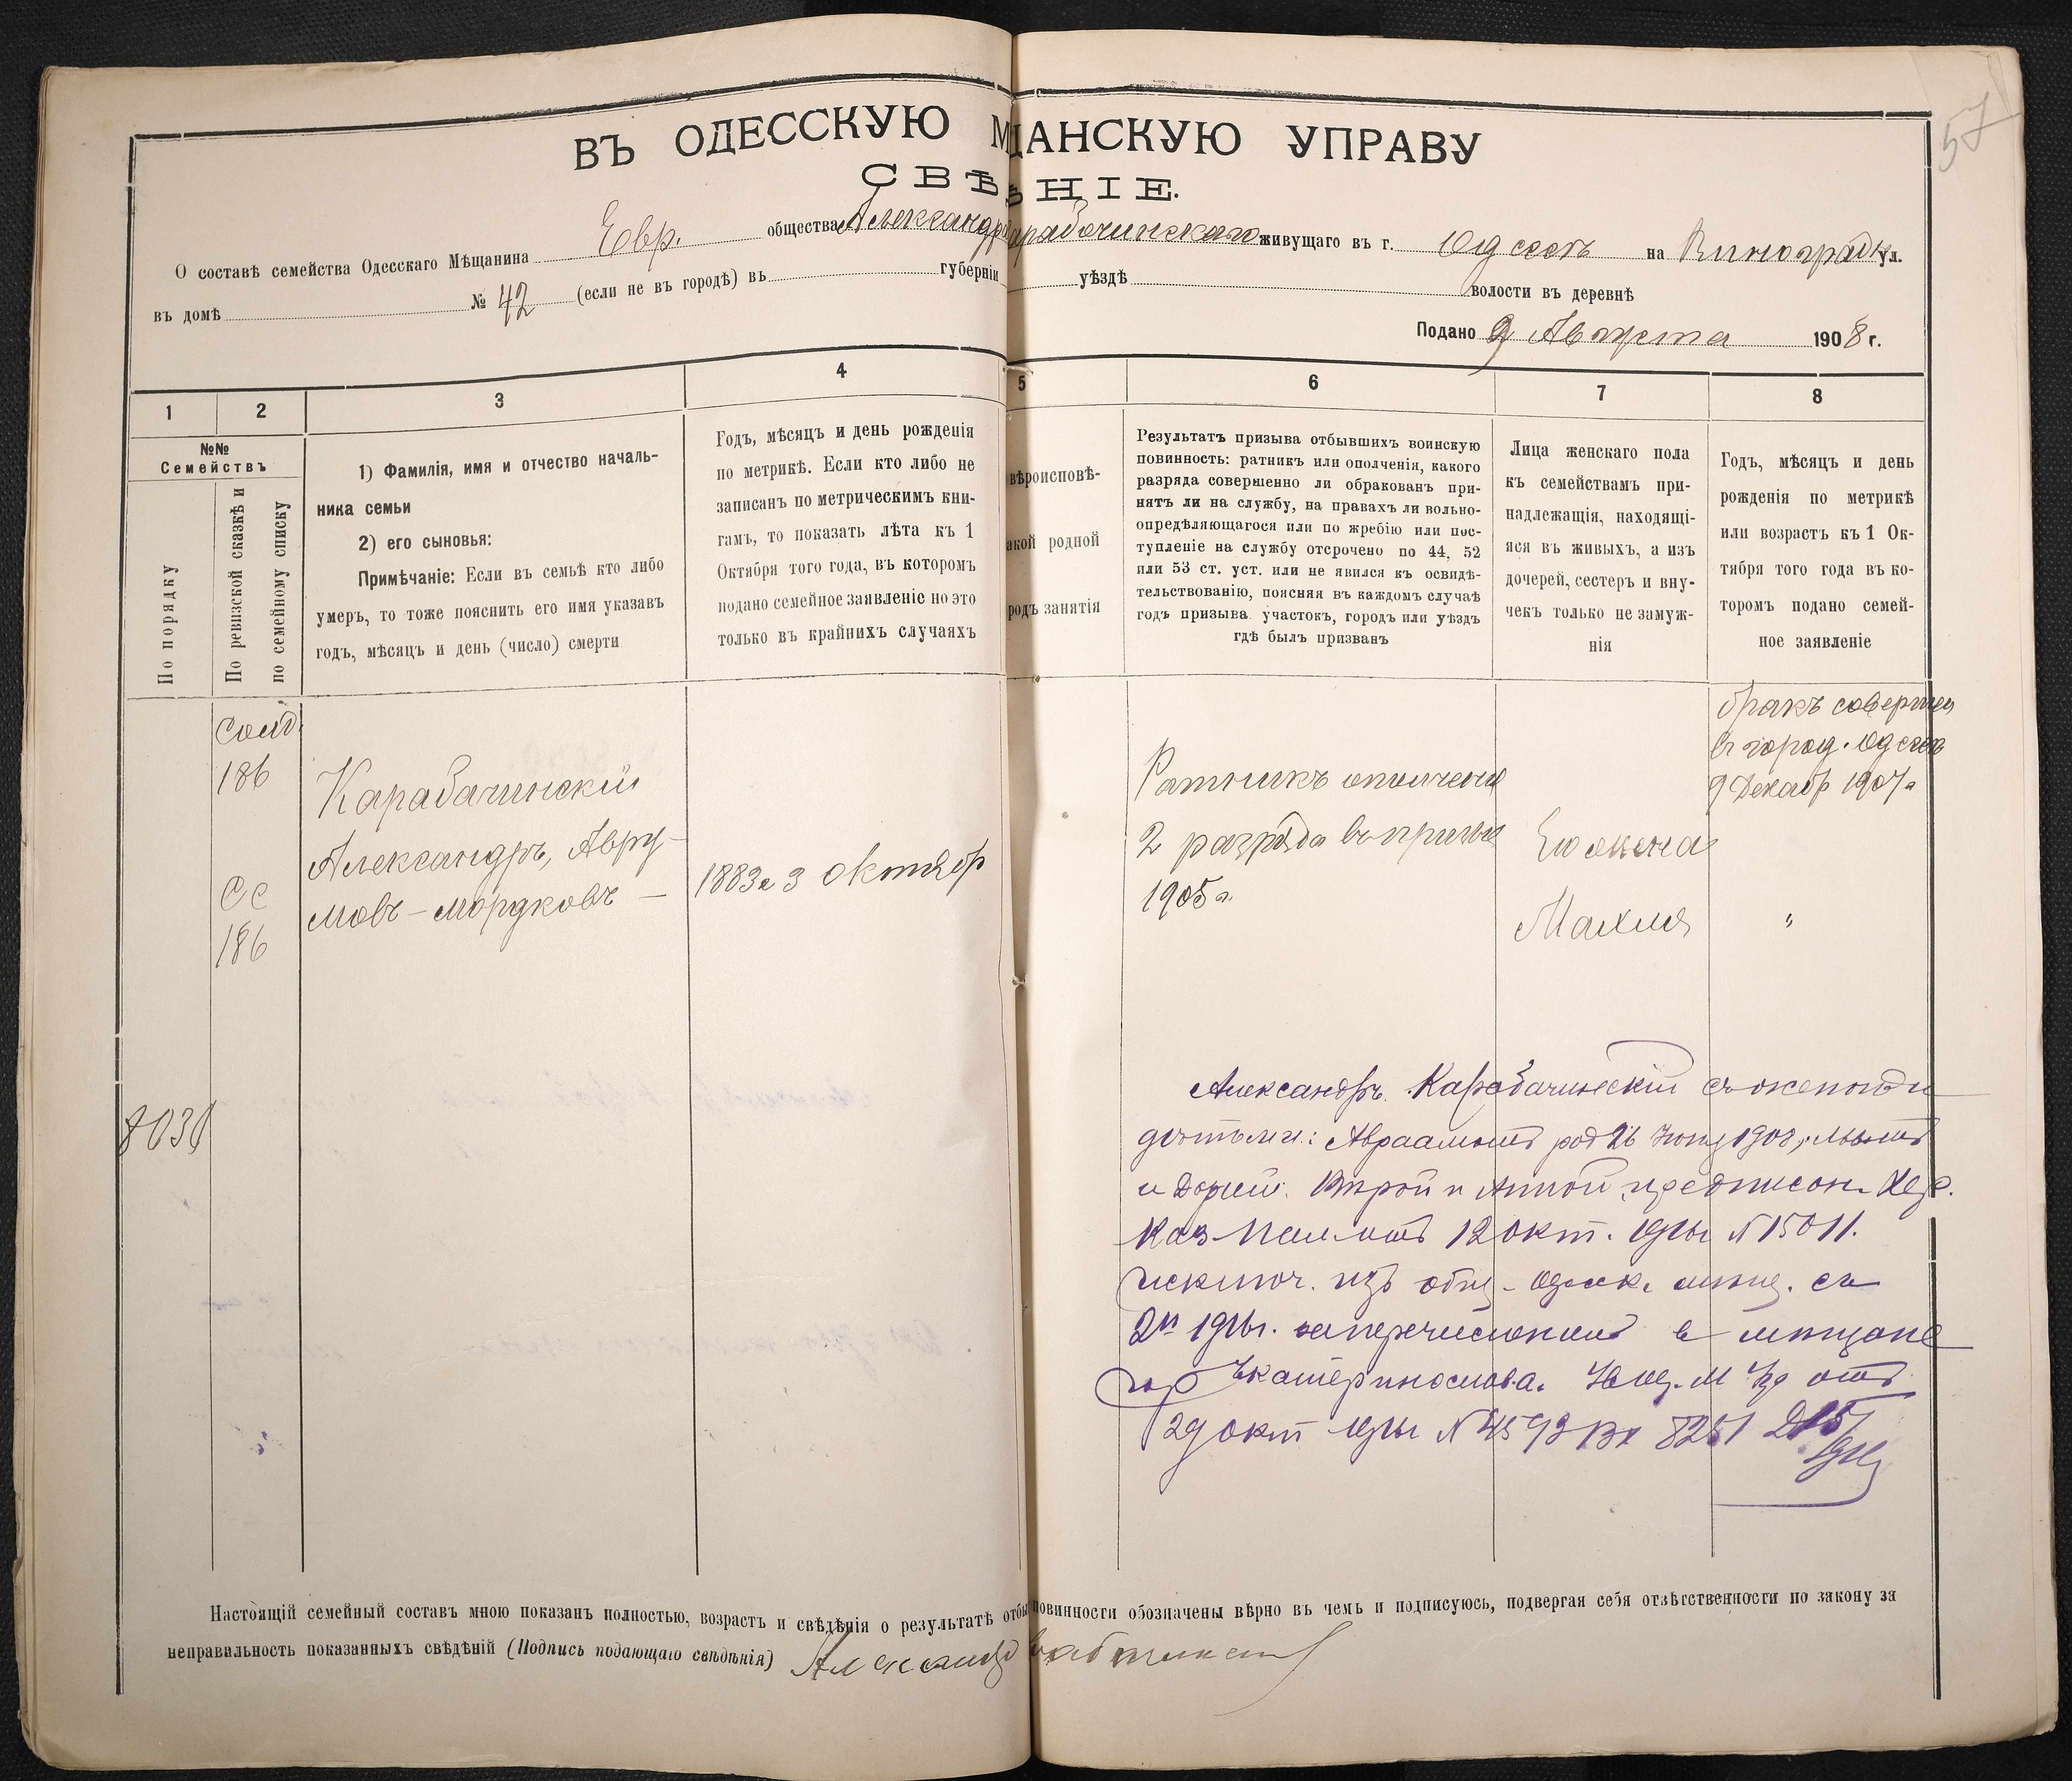 57
ВЪ ОДЕССКУЮ МѢЩАНСКУЮ УПРАВУ
СВѢДѢНІЕ.
О составѣ семейства Одесскаго Мѣщанина Евр. общества Александра Карабачинскаго живущаго въ г. Одессѣ на Виноградн ул.
въ домѣ № 42 (если не въ городѣ) въ губерніи уѣздѣ волости въ деревнѣ
Подано 9 Августа 1908 г.
1 2 3 4 5 6 7 8
№№
Семействъ
По порядку
По ревизской сказкѣ и
по семейному списку
1) Фамилія, имя и отчество началь-
ника семьи
2) его сыновья:
Примѣчаніе: Если въ семьѣ кто либо
умеръ, то тоже пояснить его имя указавъ
годъ, мѣсяцъ и день (число) смерти
Годъ, мѣсяцъ и день рожденія
по метрикѣ. Если кто либо не
записанъ по метрическимъ кни-
гамъ, то показать лѣта къ 1
Октября того года, въ которомъ
подано семейное заявленіе но это
только въ крайнихъ случаяхъ
вѣроисповѣ-
акой родной
родъ занятія
Результатъ призыва отбывшихъ воинскую
повинность: ратникъ или ополченія, какого
разряда совершенно ли обракованъ при-
нятъ ли на службу, на правахъ ли вольно-
опредѣляющагося или по жребію или пос-
тупленіе на службу отсрочено по 44, 52
или 53 ст. уст. или не явился къ освидѣ-
тельствованію, поясняя въ каждомъ случаѣ
годъ призыва участокъ, городъ или уѣздъ
гдѣ былъ призванъ
Лица женскаго пола
къ семействамъ при-
надлежащія, находящі-
яся въ живыхъ, а изъ
дочерей, сестеръ и вну-
чекъ только не замуж-
нія
Годъ, мѣсяцъ и день
рожденія по метрикѣ
или возрастъ къ 1 Ок-
тября того года въ ко-
торомъ подано семей-
ное заявленіе
186
СС
186
Карабачинскій
Александръ, Авру-
мовъ-Мордковъ-
1883 г 3 Октябр
Ратникъ ополченія
2 разряда въ призы
1905 г.
Его жена
Махля
бракъ соверше
въ город. Одессѣ
9 Декабр 1907 г
"
Александръ Карабачинскій съ женой и
дѣтьми: Авраамомъ род 26
и Анной предписан. Хер.
Каз Пал отъ 12 окт. № 15011.
исключ. изъ общ. Одесск. мѣщ. съ
перечисленіемъ в мѣщане
гор Екатеринослава. отъ
29 окт № 4593 Вх 8251
Настоящій семейный составъ мною показанъ полностью, возрастъ и свѣдѣнія о результатѣ отбы повинности обозначены вѣрно въ чемъ и подписуюсь, подвергая себя отвѣтственности по закону за
неправильность показанныхъ свѣдѣній (Подпись подающаго свѣдѣнія)